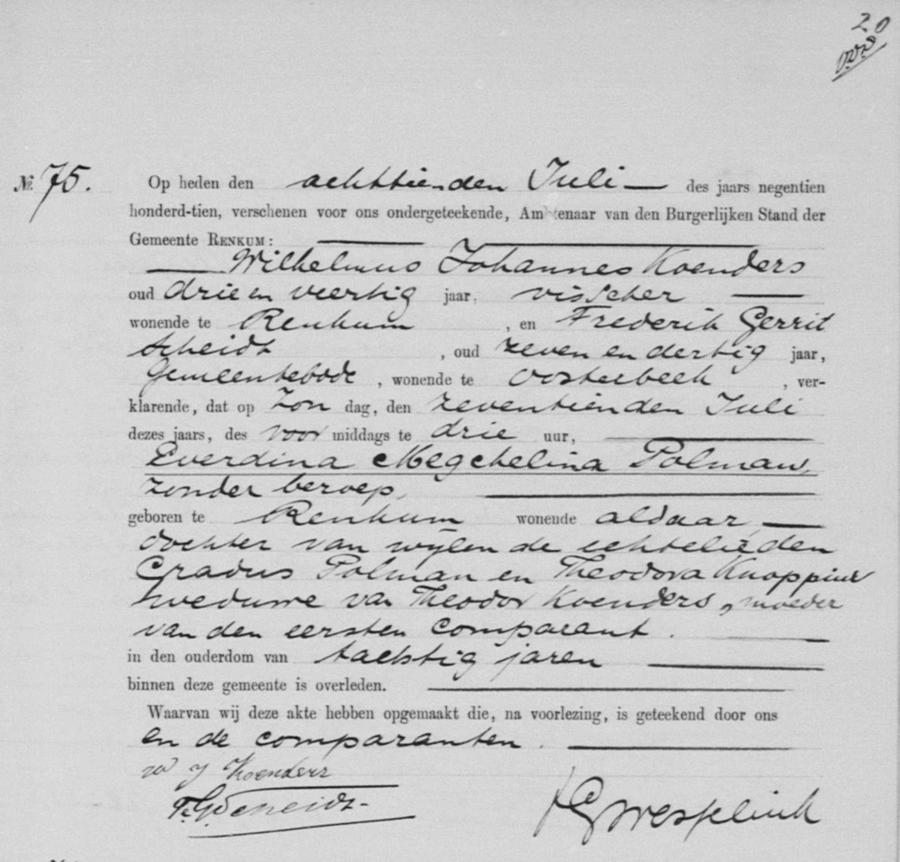 20
No. 75.
Op heden den achttienden Juli des jaars negentien
honderd-tien, verschenen voor ons ondergeteekende, Ambtenaar van den Burgerlijken Stand der
Gemeente RENKUM:
Wilhelmus Johannes Koenders
oud drie en veertig jaar, visscher
wonende te Renkum, en Frederik Gerrit
Scheidt, oud zeven en dertig jaar,
Gemeentebode, wonende te Oosterbeek, ver-
klarende, dat op Zondag, den zeventienden Juli
dezes jaars, des voormiddags te drie uur,
Everdina Megchelina Polman,
zonder beroep,
geboren te Renkum wonende aldaar,
dochter van wylen de echtelieden
Gradus Polman en Theodora Knoppiur
weduwe van Theodor Koenders, moeder
van den eersten comparant.
in den ouderdom van tachtig jaren
binnen deze gemeente is overleden.
Waarvan wij deze akte hebben opgemaakt die, na voorlezing, is geteekend door ons
en de comparanten.
W J Koenders
F. G. Scheidt